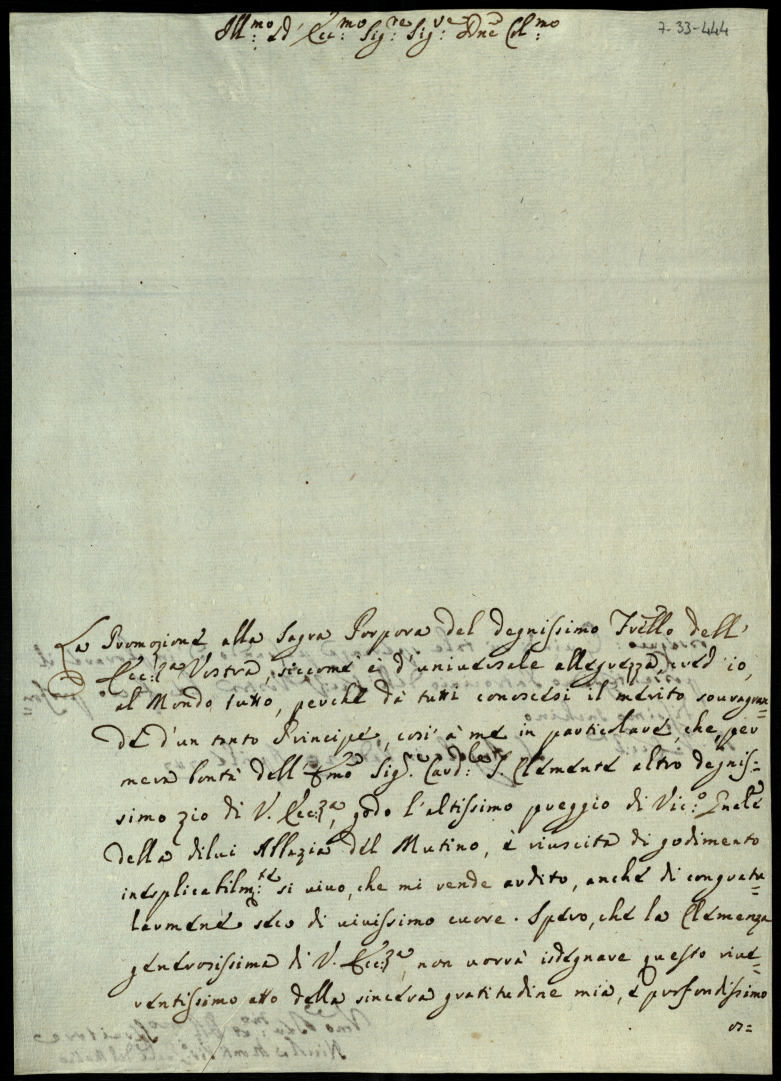 Ill:mo ed Ecc:mo Sig:re Sig:re Pne Col:mo
7-33-444
La Promozione alla Sagra Porpora del degnissimo Frello dell'
Ecc:za Vostra, siccome è d'universale allegrezza, cred'io,
al Mondo tutto, perche da tutti conoscesi il merito sovragran=
de d'un tanto Principe, così à me in particolare, che per
mera bontà dell'Emo Sig:r Card:le S. Clemente altro degnis=
simo zio di V. Ecc:za, godo l'altissimo preggio di Vic:o Gnale
della dilui Abbazia del Mutino, è riuscita di godimento
inesplicabilm:te si vivo, che mi rende ardito, anche di congratu
larmene seco di vivissimo cuore. Spero, che la Clemenza
generosissima di V. Ecc:za, non vorrà isdegnare questo rive=
rentissimo atto della sincera gratitudine mia, e profondissimo
os=